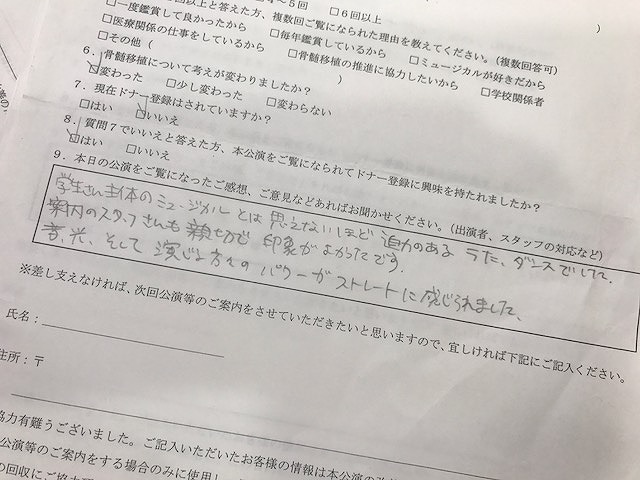 回以上と答えた方、複数回ご覧になられた理由を教えてください。（複数回答可）
□一度鑑賞して良かったから　□毎年鑑賞しているから　□ミュージカルが好きだから
□医療関係の仕事をしているから　□骨髄移植の推進に協力したいから　□学校関係者
□その他（　）
6．骨髄移植について考えが変わりましたか？
☑変わった　□少し変わった　□変わらない
7．現在ドナー登録はされていますか？
□はい　☑いいえ
8．質問7でいいえと答えた方、本公演をご覧になられてドナー登録に興味を持たれましたか？
☑はい　□いいえ
9．本日の公演をご覧になったご感想、ご意見などあればお聞かせください。（出演者、スタッフの対応など）
学生さん主体のミュージカルとは思えないほど迫力のあるうた、ダンスでした。
案内のスタッフさんも親切で印象がよかったです。
音、光、そして演じる方々のパワーがストレートに感じられました。
※差し支えなければ、次回公演等のご案内をさせていただきたいと思いますので、宜しければ下記にご記入ください。
氏名：
住所：〒
協力有難うございました。ご記入いただいたお客様の情報は本公演の
公演等のご案内をする場合のみに使用し
の回収にご協